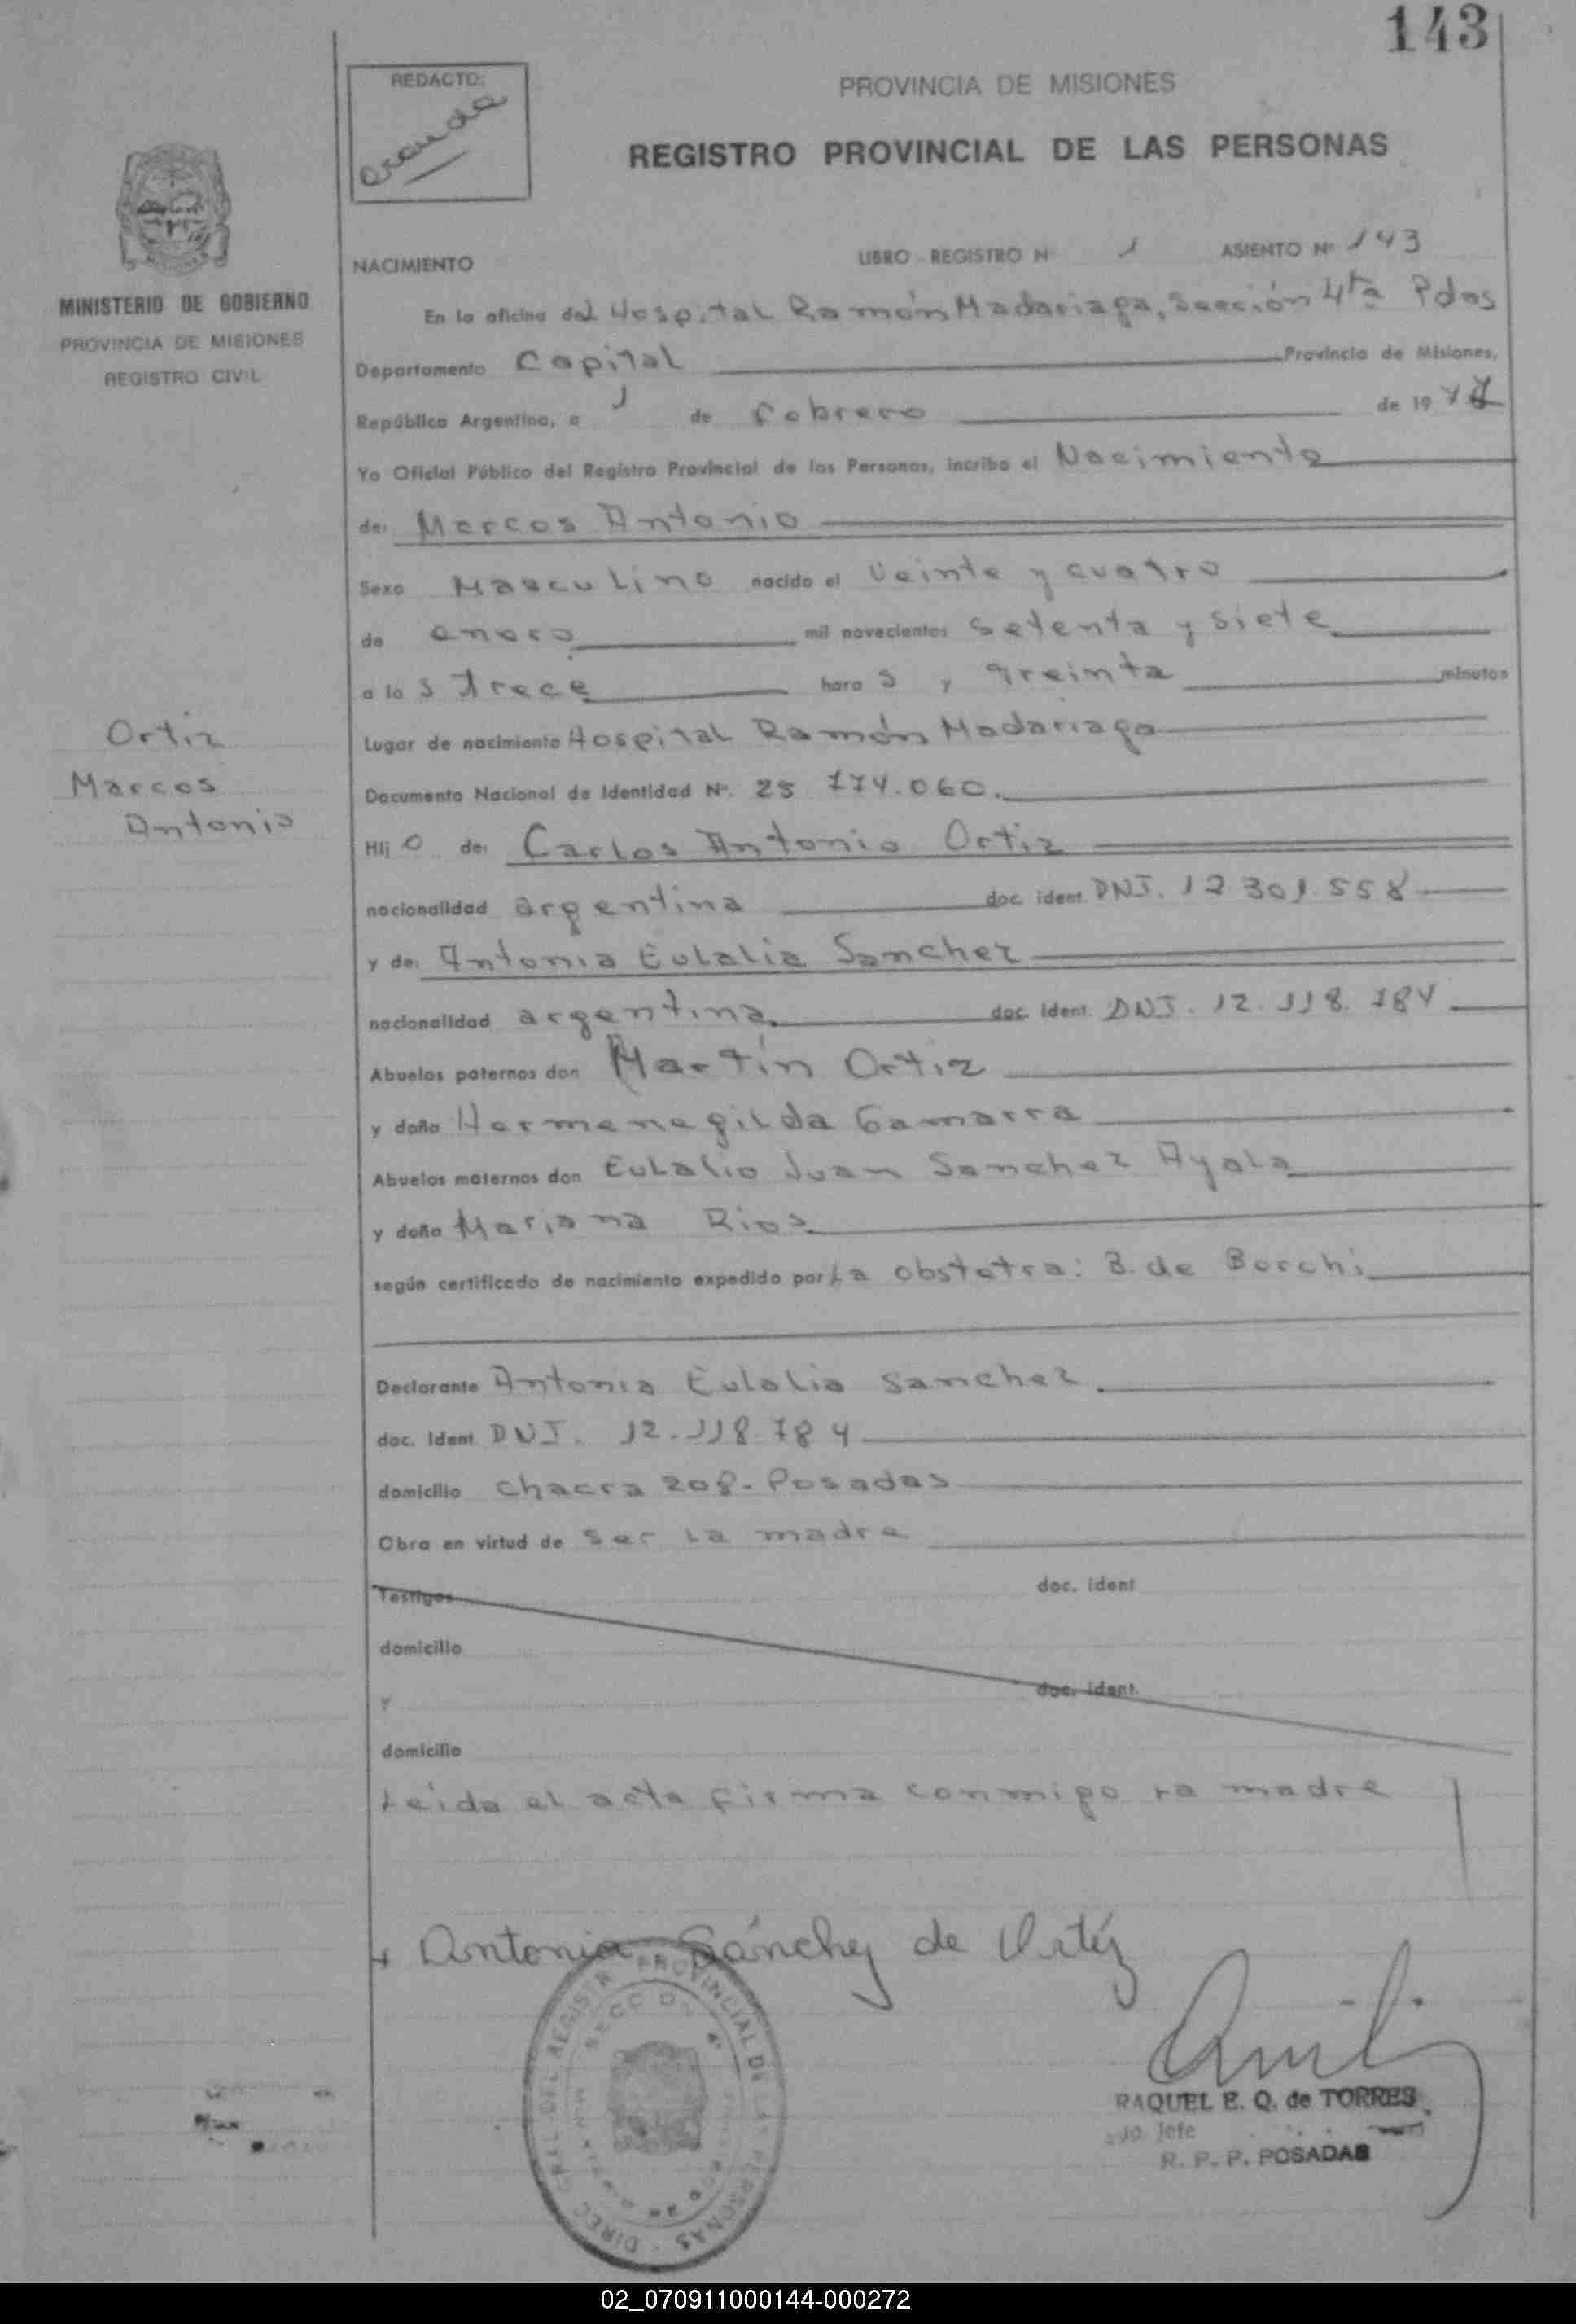 143
REDACTO:
PROVINCIA DE MISIONES
REGISTRO PROVINCIAL DE LAS PERSONAS
MINISTERIO DE GOBIERNO
PROVINCIA DE MISIONES
REGISTRO CIVIL
NACIMIENTO LIBRO REGISTRO Nº 1 ASIENTO Nº 143
En la oficina del Hospital Ramón Madariaga, Sección 4ta Pdas
Departamento Capital Provincia de Misiones,
República Argentina, a 1 de Febrero de 1977
Yo Oficial Público del Registro Provincial de las Personas, incribo el Nacimiento
de: Marcos Antonio
Sexo Masculino nacido el Veinte y cuatro
de enero mil novecientos setenta y siete
a las trece horas y treinta minutos
Lugar de nacimiento Hospital Ramón Madariaga
Documento Nacional de Identidad Nº. 25 774.060.
Ortiz
Marcos
Antonio
Hijo de: Carlos Antonio Ortiz
nacionalidad argentina doc. ident. DNI. 12 301.558
y de: Antonia Eulalia Sanchez
nacionalidad argentina doc. ident. DNI. 12.118.784
Abuelos paternos don Martín Ortiz
y doña Hermenegilda Gamarra
Abuelos maternos don Eulalio Juan Sanchez Ayala
y doña Mariana Rios
según certificado de nacimiento expedido por La obstetra: B. de Borchi
Declarante Antonia Eulalia Sanchez.
doc. Ident DNI. 12.118.784
domicilio Chacra 208- Posadas
Obra en virtud de ser la madre
Testigos doc. ident
domicilio
y doc. ident.
domicilio
Leida el acta firma conmigo la madre
Antonia Sánchez de Ortíz
DIREC. GRAL. DEL REGISTRO PROVINCIAL DE LAS PERSONAS
SECCION 4ª
RAQUEL E. Q. de TORRES
Jefe
R. P. P. POSADAS
02_070911000144-000272